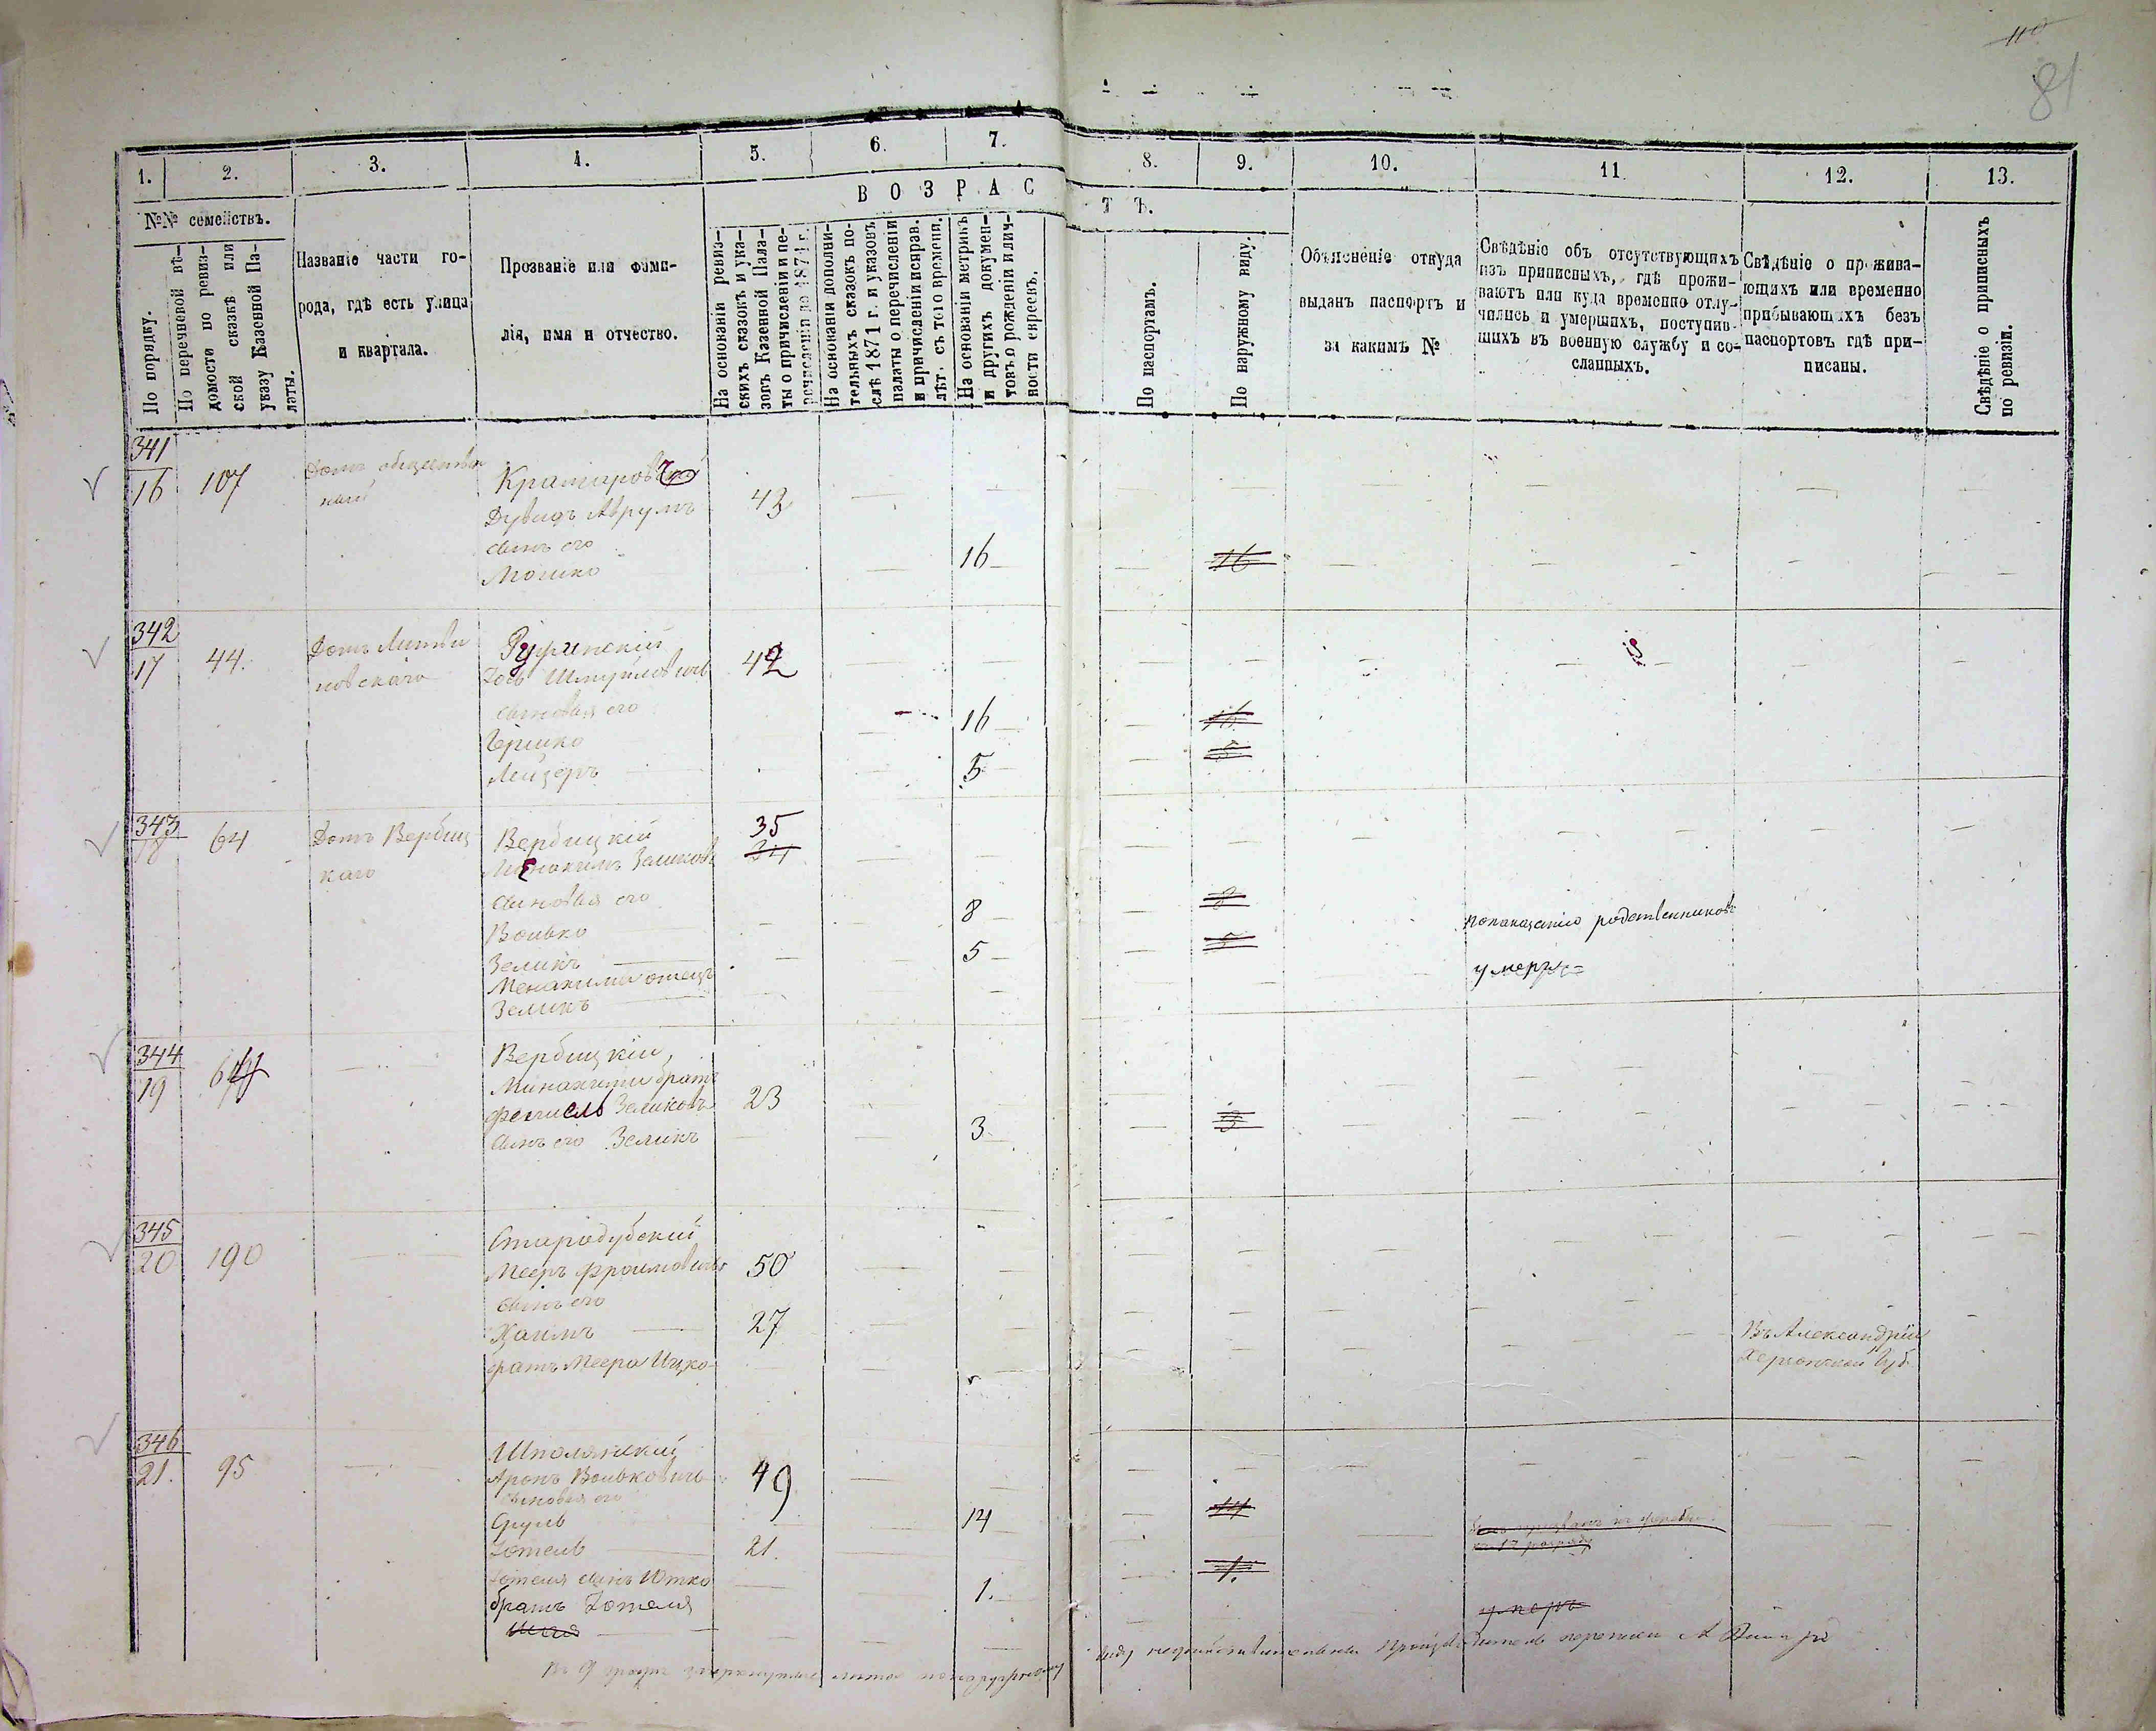 81
1. 2. 3. 4. 5. 6. 7. 8. 9. 10. 11 12. 13.
ВОЗРАСТЪ.
№№ семействъ.
По порядку.
По перечневой вѣ-
домости по ревиз-
ской сказкѣ или
указу Казенной Па-
латы.
Названіе части го-
рода, гдѣ есть улица
и квартала.
Прозваніе или фами-
лія, имя и отчество.
На основаніи ревиз-
скихъ сказокъ и ука-
зовъ Казенной Пала-
ты о причисленіи и пе-
речисленіи до 1871 г.
На основаніи дополни-
тельныхъ сказокъ по-
слѣ 1871 г. и указовъ
палаты о перечисленіи
и причисленіи исправ.
лѣт. съ того времени.
На основаніи метрикъ
и другихъ докумен-
товъ о рожденіи и лич-
ности евреевъ.
По паспортамъ.
По наружному виду.
Объясненіе откуда
выданъ паспортъ и
за какимъ №
Свѣдѣніе объ отсутствующихъ
изъ приписныхъ, гдѣ прожи-
ваютъ или куда временно отлу-
чились и умершихъ, поступив-
шихъ въ военную службу и со-
сланныхъ.
Свѣдѣніе о прожива-
ющихъ или временно
прибывающихъ безъ
паспортовъ гдѣ при-
писаны.
Свѣдѣніе о приписныхъ
по ревизіи.
341
16 107 Домъ обществен
наго
Крамаров
Дувидъ Аврумъ 43
сынъ его
Мошко 16 16
342
17 44. Домъ Литви
новскаго
Шмуйловичъ 42
сыновья его
Гершко 16 16
Лейзеръ 5 5
343
18 64 Домъ Вербиц
каго
Вербицкій 35
Менахимъ Зеликовъ 34
сыновья его
Волько 8 8
Зеликъ 5 5
Менахима отецъ
Зеликъ
по показанію родственниковъ
умеръ
344
19 64
Вербицкій
Минахима братъ
Фемисель Зеликовъ 23
сынъ его Зеликъ 3 3
345
20 190
Стародубскій
Мееръ Фроимовичъ 50
сынъ его
Хаимъ 27
братъ Меера Ицко
Въ Александріи
Херсонской Губ.
346
21. 95
Шполянскій
Аронъ Вольковичъ 49
сыновья его
Сруль 14 14
Зотель 21.
Зотеля сынъ Ютко 1. 1.
братъ Зотеля
умеръ